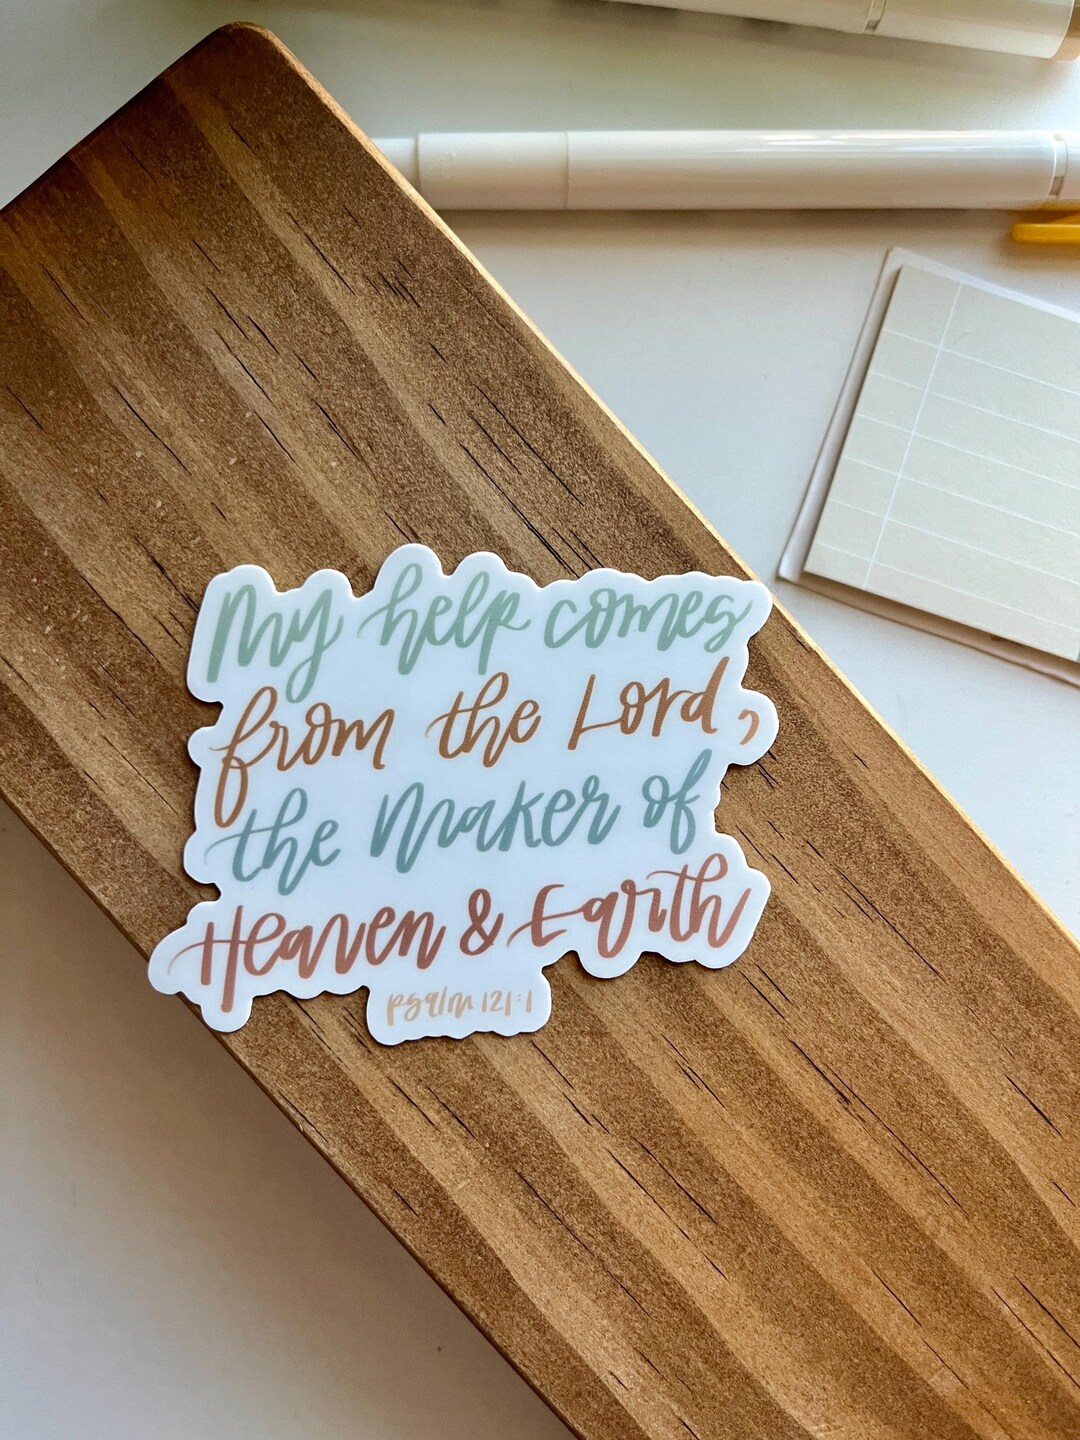 My help comes
from the Lord,
the Maker of
Heaven & Earth
psalm 121:1